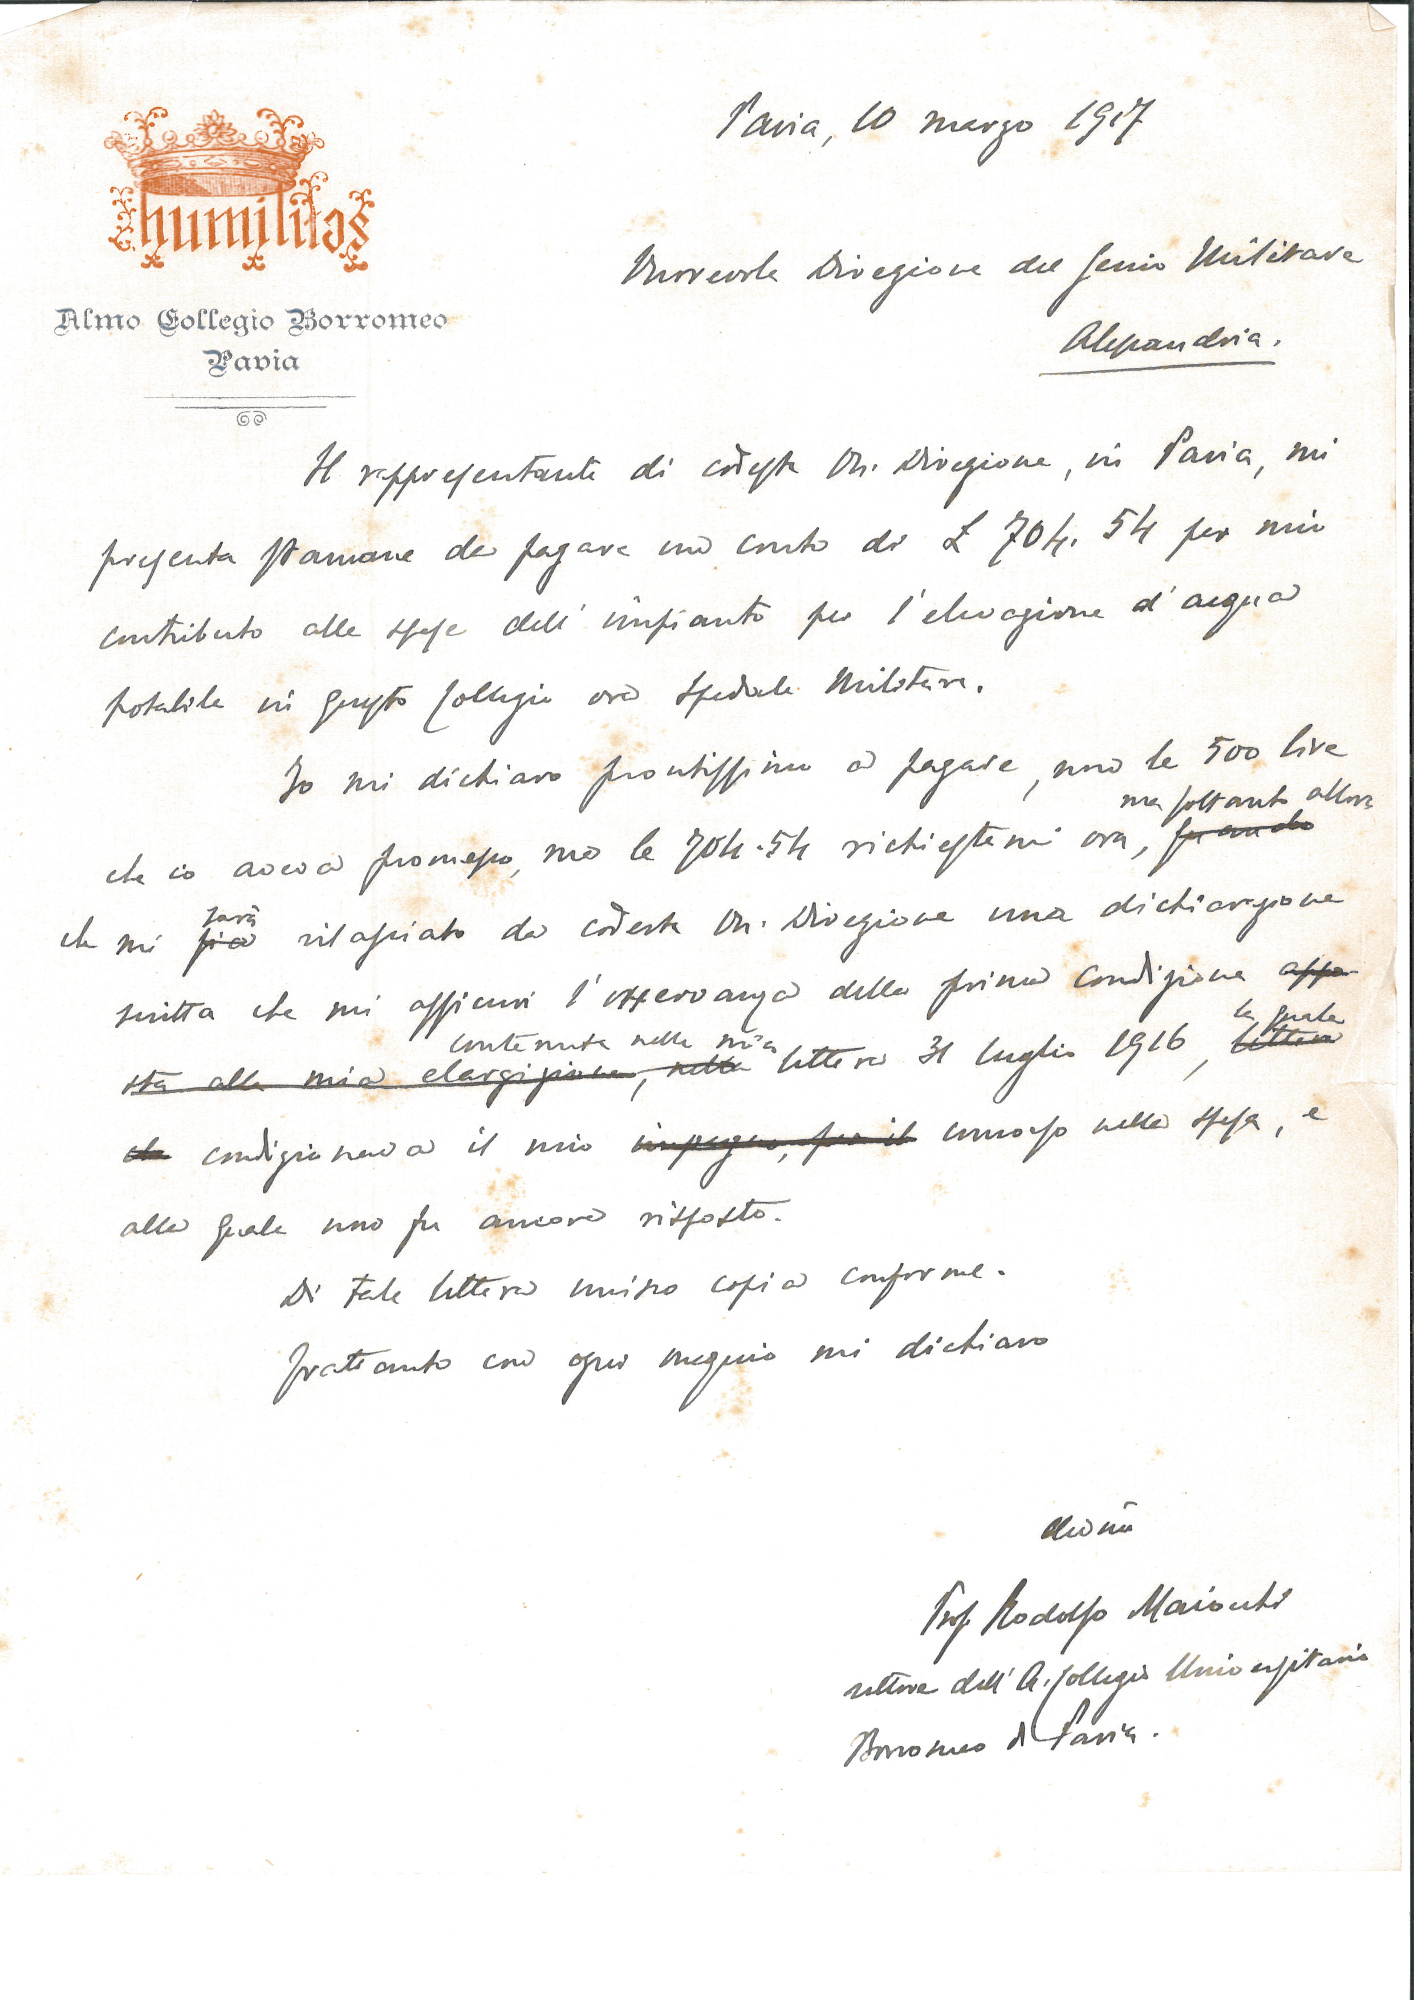 humilitas
Almo Collegio Borromeo
Pavia
Pavia, 10 marzo 1917
Onorevole Direzione del Genio Militare
Alessandria.
Il rappresentante di codesta On. Direzione, in Pavia, mi
presenta stamane da pagare un conto di £ 704.54 per mio
contributo alle spese dell'impianto per l'elevazione d'acqua
potabile in questo Collegio ora Spedale Militare.
Io mi dichiaro prontissimo a pagare, non le 500 lire
ma soltanto allora
che io aveva promesso, ma le 704.54 richiestemi ora, quando
sarà
che mi sia rilasciato da codesta On. Direzione una dichiarazione
scritta che mi assicuri l'osservanza della prima condizione appo-
contenuta nella mia la quale
sta alla mia elargizione, nella lettera 31 luglio 1916, lettera
che condizionava il mio impegno, per il concorso nella spesa, e
alla quale non fu ancora risposto.
Di tale lettera unisco copia conforme.
Frattanto con ogni ossequio mi dichiaro
Prof Rodolfo Maiocchi
rettore dell'A. Collegio Universitario
Borromeo di Pavia.